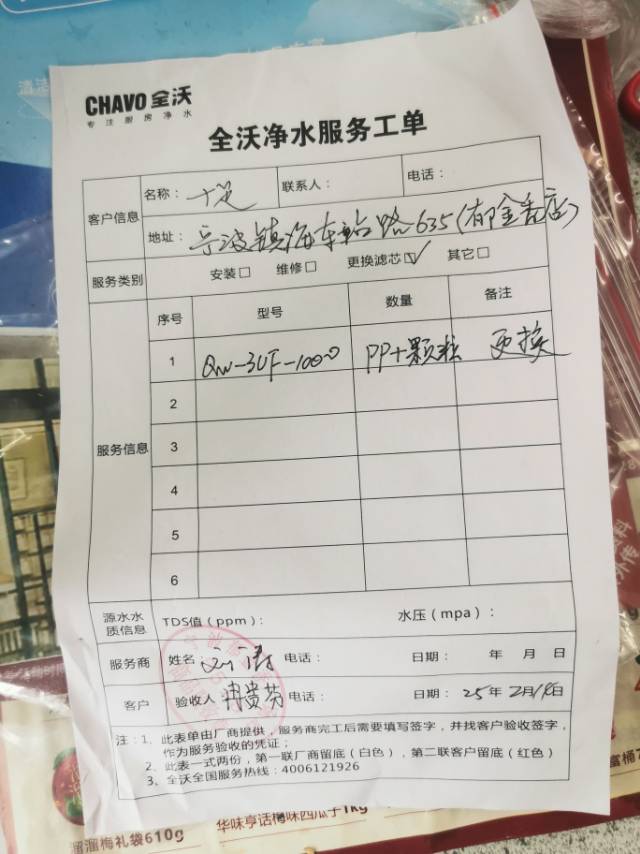 CHAVO 全沃
专注厨房净水
全沃净水服务工单
客户信息
名称：十足
联系人：
电话：
地址：宁波镇海车站路635(郁金香店)
服务类别
安装□ 维修□ 更换滤芯☑ 其它□
服务信息
序号 型号 数量 备注
1 QW-3UF-1000 PP+颗粒 更换
2
3
4
5
6
源水水质信息
TDS值（ppm）： 水压（mpa）：
服务商 姓名： 电话： 日期： 年 月 日
客户 验收人 冉贵芬 电话： 日期：25年2月18日
注：1、此表单由厂商提供，服务商完工后需要填写签字，并找客户验收签字，
作为服务验收的凭证；
2、此表一式两份，第一联厂商留底（白色），第二联客户留底（红色）
3、全沃全国服务热线：4006121926
溜溜梅礼袋610g
华味亨话梅味西瓜子1kg